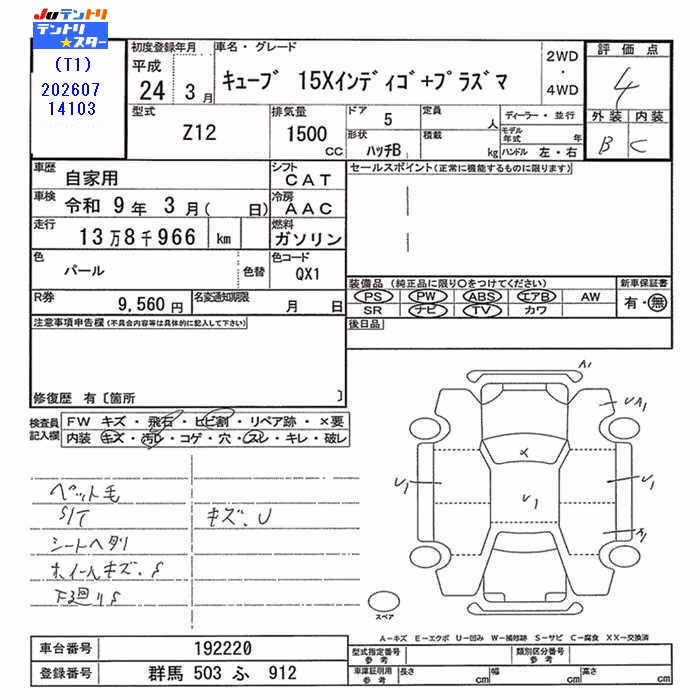 JUテントリ
テントリ★スター
(T1)
202607
14103
初度登録年月
平成
24 3月
車名・グレード
キューブ 15Xインディゴ+プラズマ
2WD
・
4WD
評価点
4
外装 内装
B C
型式
Z12
排気量
1500
CC
ドア
5
形状
ハッチB
定員
人
積載
kg
ディーラー・並行
モデル年式 年
ハンドル 左・右
車歴
自家用
シフト
CAT
車検
令和 9年 3月( 日)
冷房
AAC
走行
13万8千966 km
燃料
ガソリン
色
パール
色替
色コード
QX1
R券
9,560円
名変通知期限
月 日
セールスポイント(正常に機能するものに限ります)
装備品(純正品に限り○をつけてください)
PS PW ABS エアB AW
SR ナビ TV カワ
新車保証書
有・無
後日品
注意事項申告欄(不具合内容等は具体的に記入して下さい)
修復歴 有〔箇所 〕
検査員
記入欄
FW キズ・飛石・ヒビ割・リペア跡・×要
内装 キズ・汚レ・コゲ・穴・スレ・キレ・破レ
ペット毛
S/T
キズ.U
シートヘタリ
ホイールキズ.S
下廻りS
A1
UA1
X
U1
U1
U1
X1
スペア
A－キズ E－エクボ U－凹み W－補修跡 S－サビ C－腐食 XX－交換済
車台番号
192220
登録番号
群馬 503 ふ 912
型式指定番号
参考
類別区分番号
参考
車庫証明用
参考
長さ cm
幅 cm
高さ cm